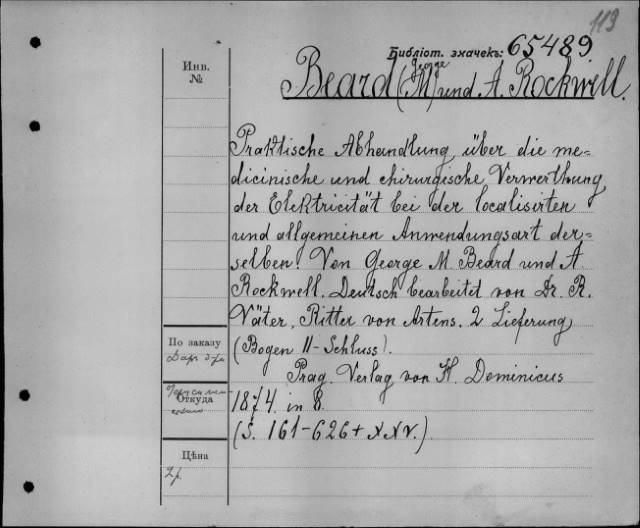 119
Библіот. значекъ: 65489
Инв.
№
George
Beard (M) und A. Rockwell.
Praktische Abhandlung über die me-
dicinische und chirurgische Verwerthung
der Elektricität bei der localisirten
und allgemeinen Anwendungsart der-
selben. Von George M. Beard und A
Rockwell. Deutsch bearbeitet von Dr. R.
Väter, Ritter von Artens. 2 Lieferung
(Bogen 11-Schluss).
Prag. Verlag von H. Dominicus
1874. in 8.
(S. 161-626 + XXV.)
По заказу
Откуда
Цѣна
2р